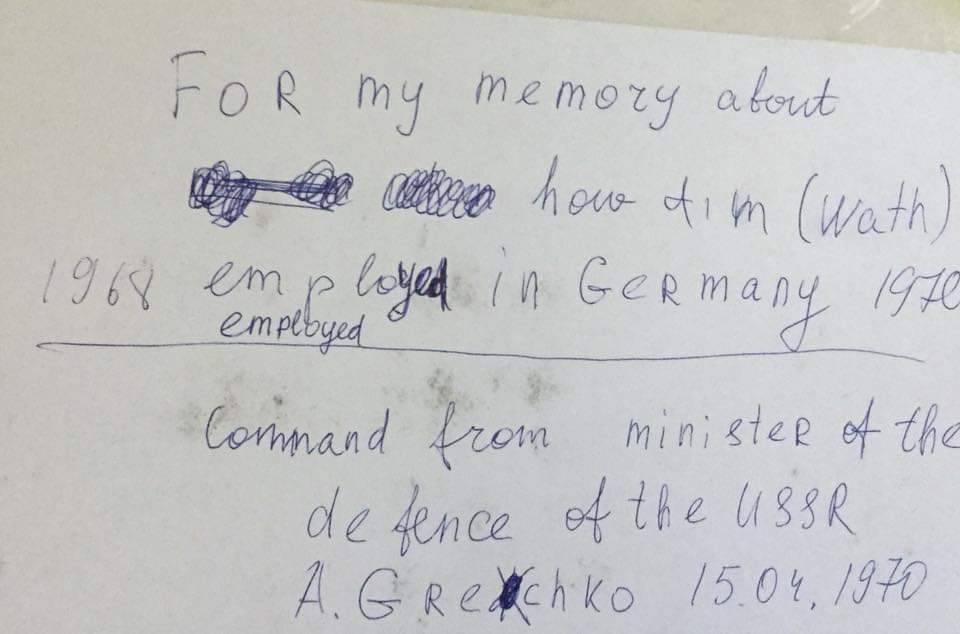 FOR my memory about
how tim (wath)
1968 employed in GeRmany 1970
employed
Command from ministeR of the
defence of the USSR
A. GRechko 15.04.1970